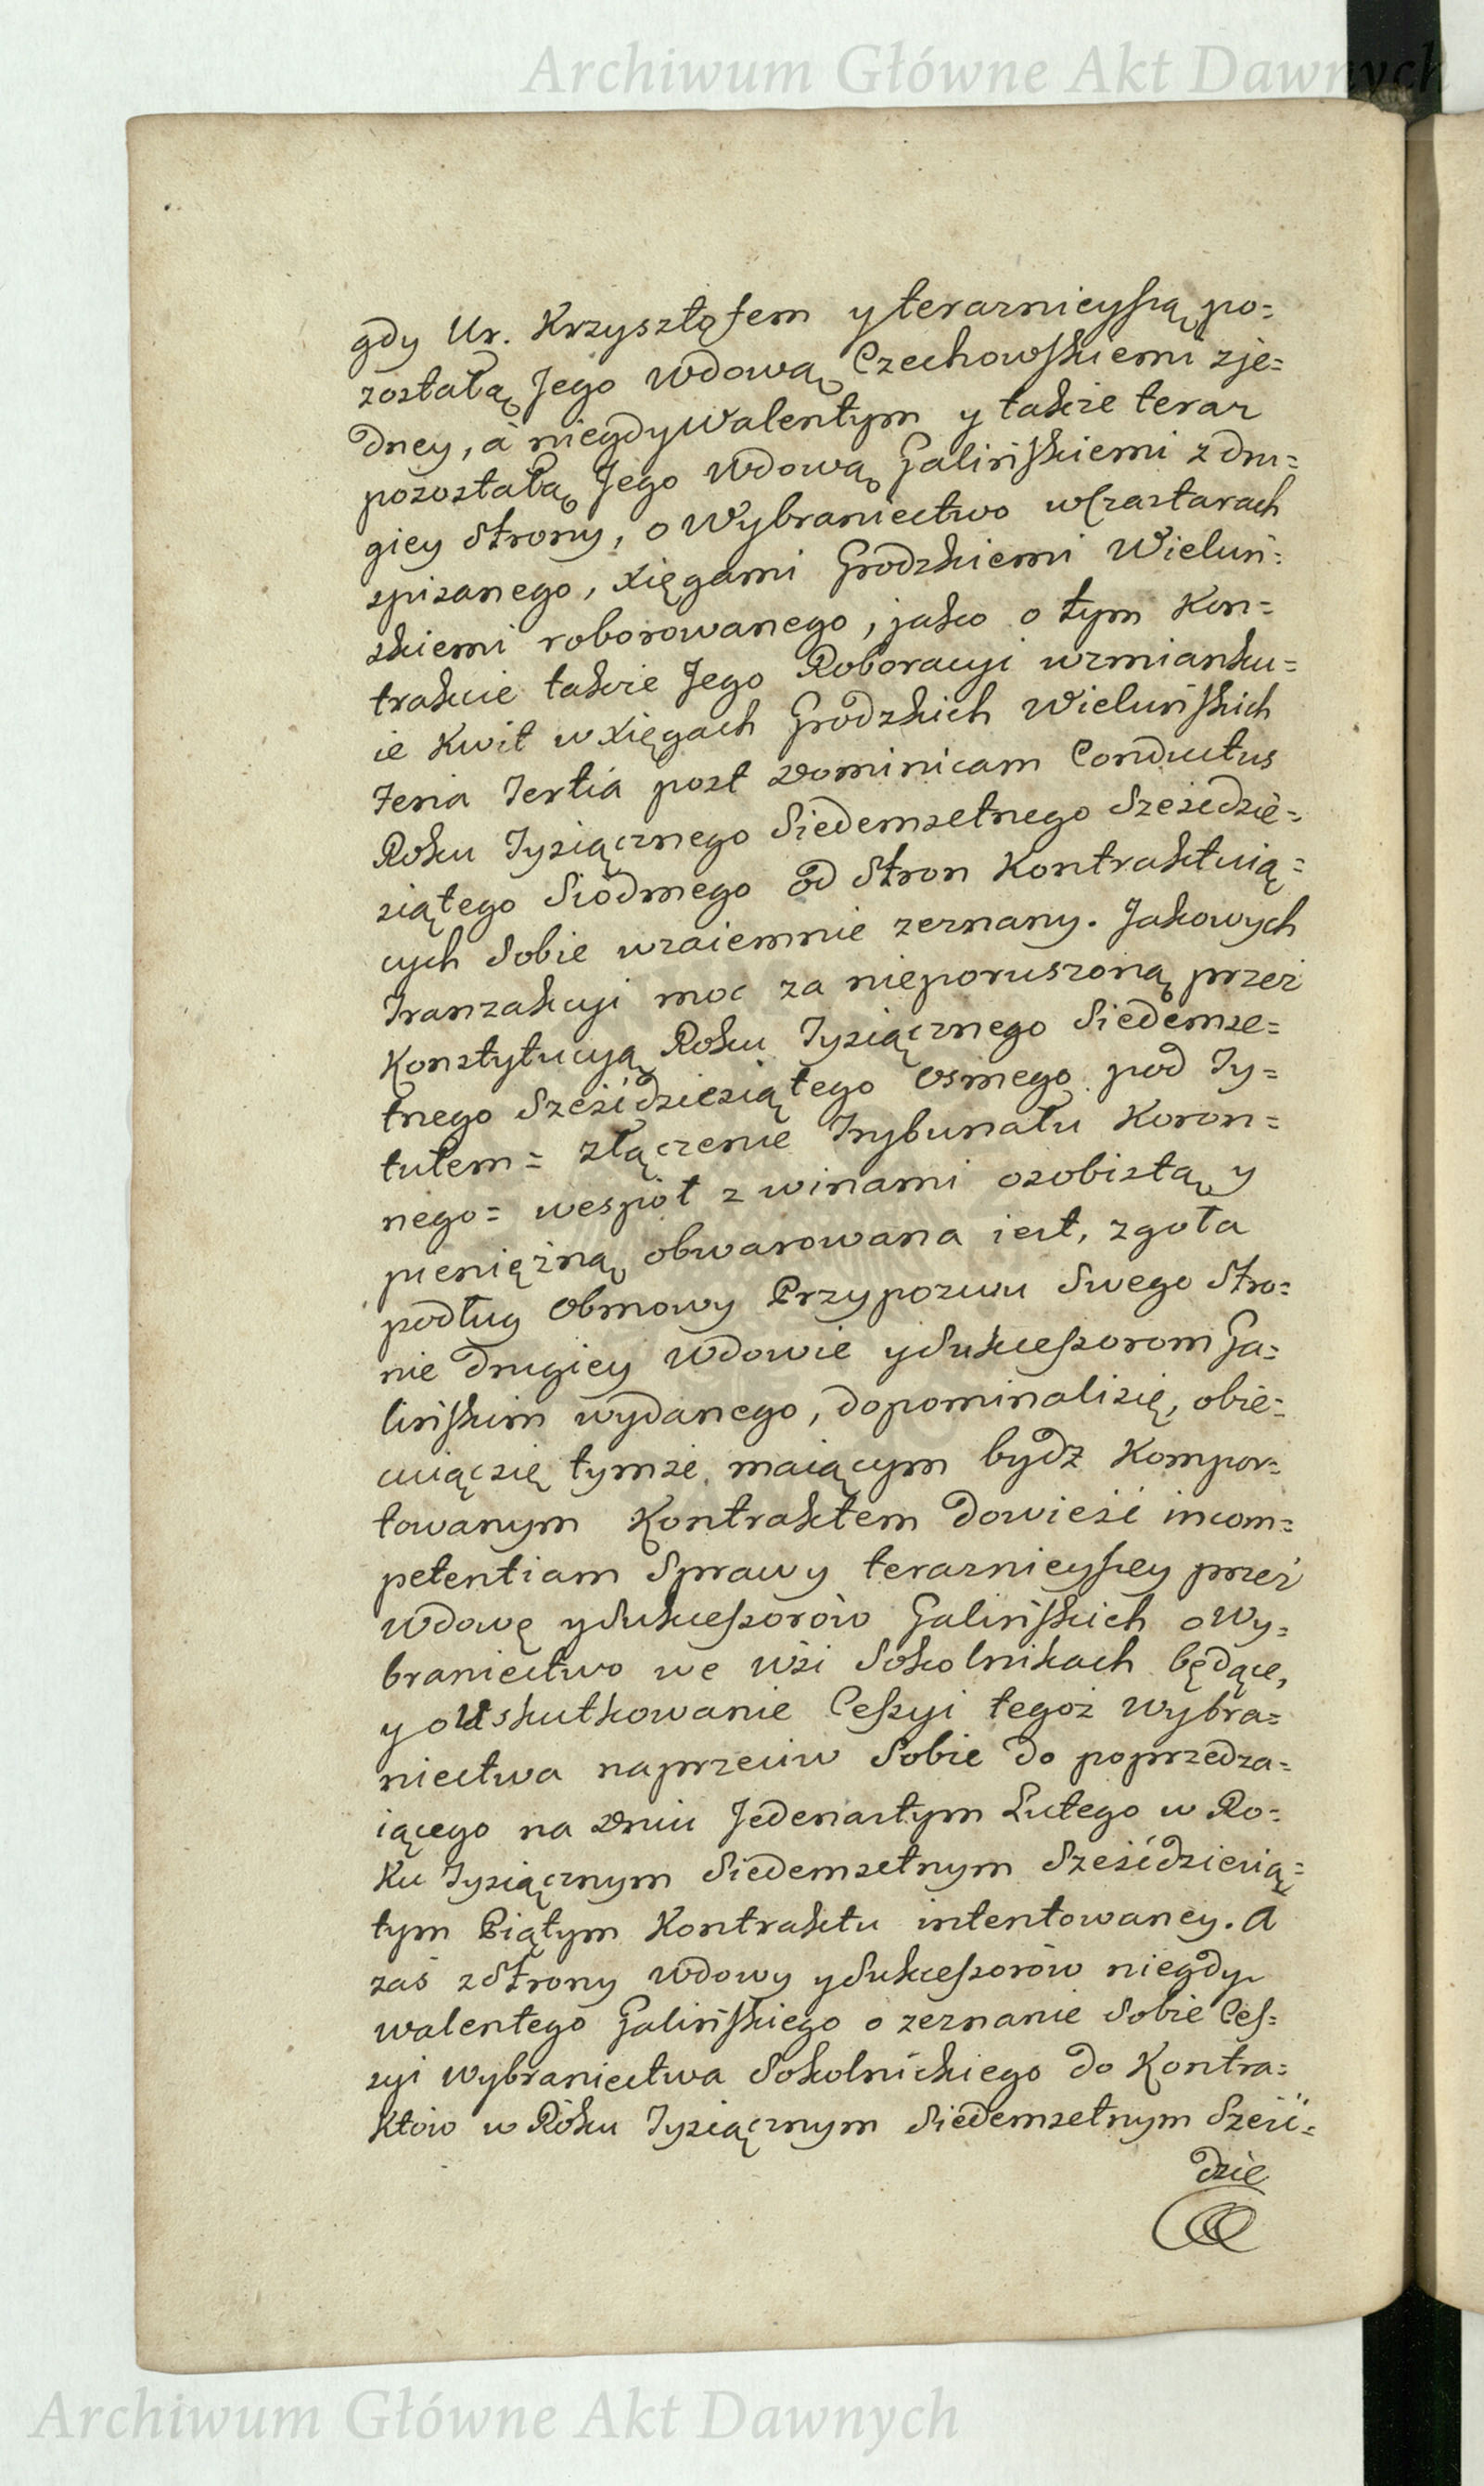 Archiwum Główne Akt Dawnych
gdy Ur. Krzysztofem y teraznieyszą po=
zostałą Jego Wdową Czechowskiemi z je=
dney, á niegdy Walentym y także teraz
pozostałą Jego Wdową Galińskiemi z dru=
giey Strony, o Wybraniectwo w Czastarach
spisanego, Xięgami Grodzkiemi Wieluń=
skiemi roborowanego, jako o tym Kon=
trakcie także Jego Roboracyi wzmianku=
ie Kwit w Xięgach Grodzkich Wieluńskich
Feria Tertia post Dominicam Conductus
Roku Tysiącznego Siedemsetnego Sześcdzie=
siątego Siodmego od Stron Kontraktuią=
cych Sobie wzaiemnie zeznany. Jakowych
Tranzakcyi moc za nieporuszoną przez
Konstytucyą Roku Tysiącznego Siedemse=
tnego Sześćdziesiątego Osmego pod Ty=
tułem= złączenie Trybunału Koron=
nego= wespół z winami osobistą y
pieniężną obwarowana iest, zgoła
podług Obmowy Przypozwu Swego Stro=
nie drugiey Wdowie y Sukcessorom Ga=
lińskim wydanego, dopominali się, obie=
cuiąc się tymże maiącym bydz Kompor=
towanym Kontraktem dowieść incom=
petentiam Sprawy teraznieyszey przez
Wdowę y Sukcessorów Galińskich o Wy=
braniectwo we Wsi Sokolnikach będące,
y o Uskutkowanie Cessyi tegoż Wybra=
niectwa naprzeciw Sobie do poprzedza=
iącego na Dniu Jedenastym Lutego w Ro=
ku Tysiącznym Siedemsetnym Sześćdziesią=
tym Piątym Kontraktu intentowaney. A
zaś z Strony Wdowy y Sukcessorów niegdy
Walentego Galińskiego o zeznanie Sobie Ces=
syi Wybraniectwa Sokolnickiego do Kontra=
któw w Roku Tysiącznym Siedemsetnym Sześć=
dzie
Archiwum Główne Akt Dawnych